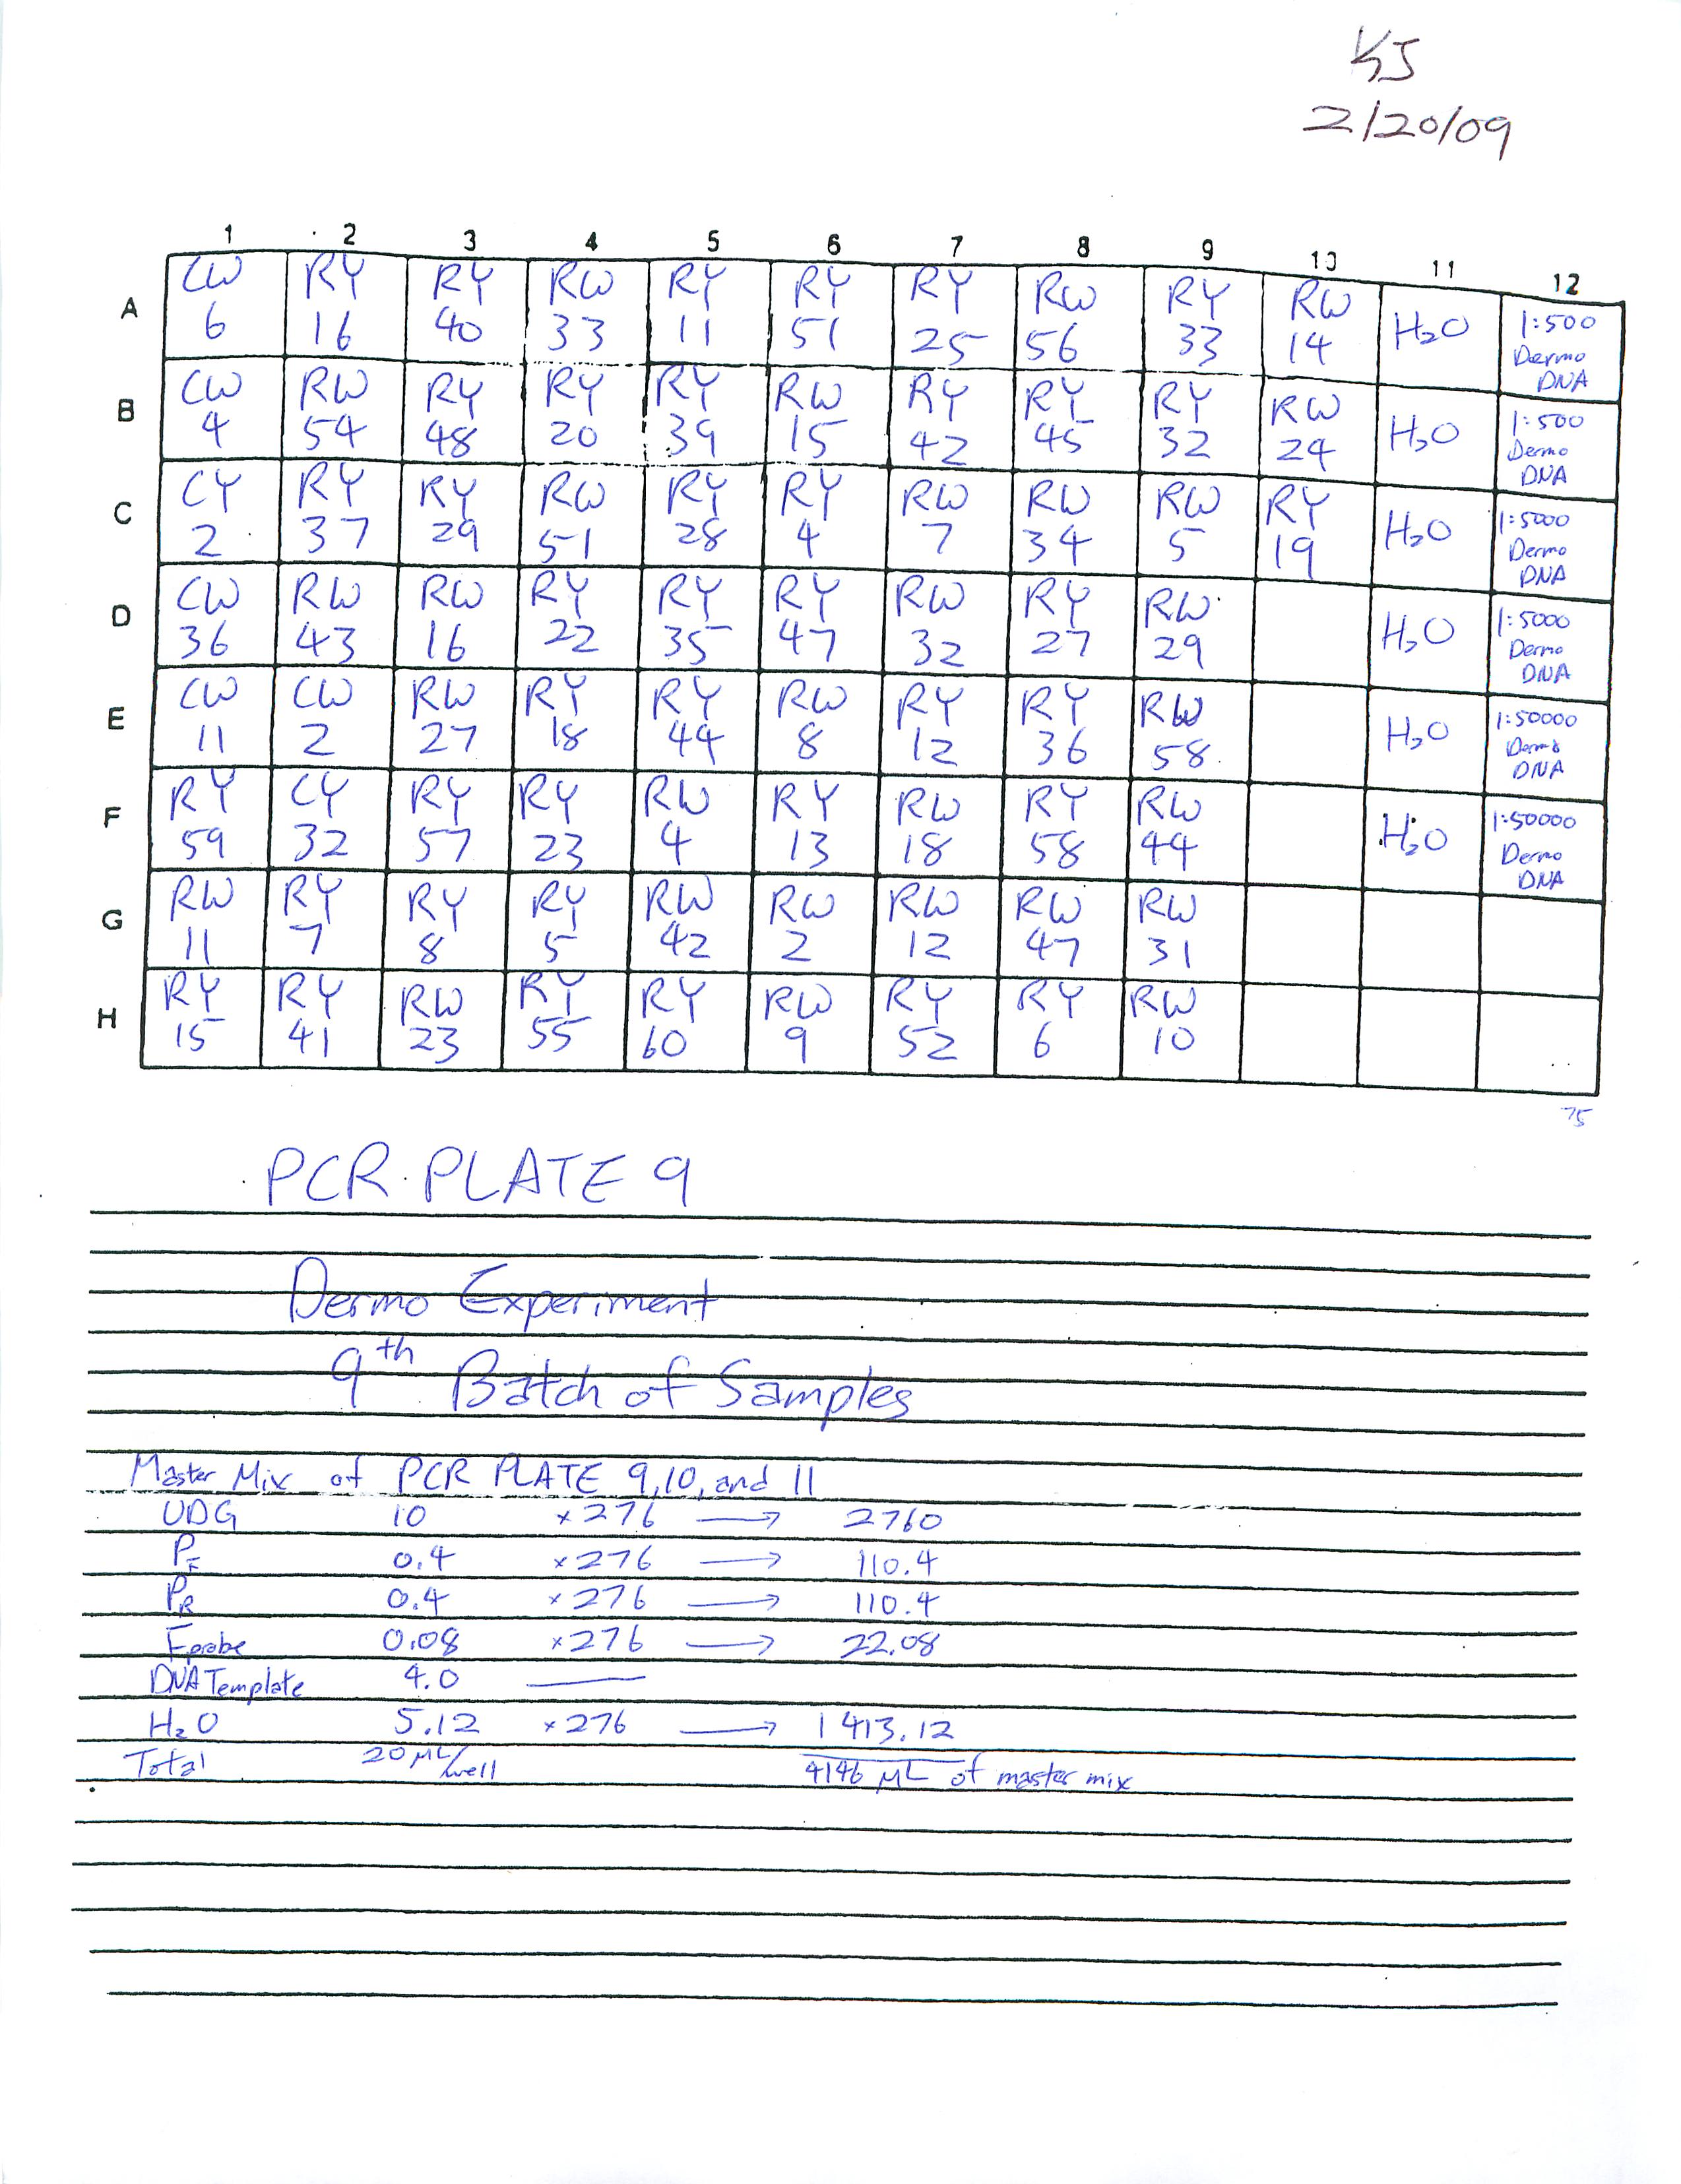 KJ
2/20/09
1 2 3 4 5 6 7 8 9 10 11 12
A CW 6 RY 16 RY 40 RW 33 RY 11 RY 51 RY 25 RW 56 RY 33 RW 14 H₂O 1:500 Dermo DNA
B CW 4 RW 54 RY 48 RY 20 RY 39 RW 15 RY 42 RY 45 RY 32 RW 24 H₂O 1:500 Dermo DNA
C CY 2 RY 37 RY 29 RW 51 RY 28 RY 4 RW 7 RW 34 RW 5 RY 19 H₂O 1:5000 Dermo DNA
D CW 36 RW 43 RW 16 RY 22 RY 35 RY 47 RW 32 RY 27 RW 29 H₂O 1:5000 Dermo DNA
E CW 11 CW 2 RW 27 RY 18 RY 44 RW 8 RY 12 RY 36 RW 58 H₂O 1:50000 Dermo DNA
F RY 59 CY 32 RY 57 RY 23 RW 4 RY 13 RW 18 RY 58 RW 44 H₂O 1:50000 Dermo DNA
G RW 11 RY 7 RY 8 RY 5 RW 42 RW 2 RW 12 RW 47 RW 31
H RY 15 RY 41 RW 23 RY 55 RY 60 RW 9 RY 52 RY 6 RW 10
75
PCR PLATE 9
Dermo Experiment
9th Batch of Samples
Master Mix of PCR PLATE 9,10, and 11
UDG 10 ×276 → 2760
PF 0.4 ×276 → 110.4
PR 0.4 ×276 → 110.4
Fprobe 0.08 ×276 → 22.08
DNA Template 4.0 —
H₂O 5.12 ×276 → 1413.12
Total 20 µL/well 4146 µL of master mix